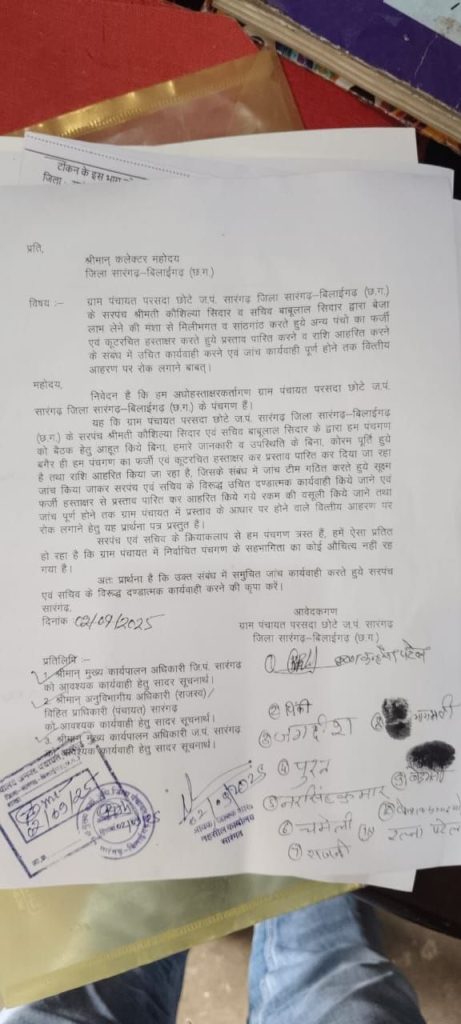 टोकन के इस भाग को
जिला :-
प्रति,
श्रीमान् कलेक्टर महोदय
जिला सारंगढ़–बिलाईगढ़ (छ.ग.)
विषय :– ग्राम पंचायत परसदा छोटे ज.पं. सारंगढ़ जिला सारंगढ़–बिलाईगढ़ (छ.ग.)
के सरपंच श्रीमती कौशिल्या सिदार व सचिव बाबूलाल सिदार द्वारा बेजा
लाभ लेने की मंशा से मिलीभगत व सांठगांठ करते हुये अन्य पंचो का फर्जी
एवं कूटरचित हस्ताक्षर करते हुये प्रस्ताव पारित करने व राशि आहरित करने
के संबंध में उचित कार्यवाही करने एवं जांच कार्यवाही पूर्ण होने तक वित्तीय
आहरण पर रोक लगाने बाबत्।
महोदय,
निवेदन है कि हम अधोहस्ताक्षरकर्तागण ग्राम पंचायत परसदा छोटे ज.पं.
सारंगढ़ जिला सारंगढ़–बिलाईगढ़ (छ.ग.) के पंचगण हैं।
यह कि ग्राम पंचायत परसदा छोटे ज.पं. सारंगढ़ जिला सारंगढ़–बिलाईगढ़
(छ.ग.) के सरपंच श्रीमती कौशिल्या सिदार एवं सचिव बाबूलाल सिदार के द्वारा हम पंचगण
को बैठक हेतु आहूत किये बिना, हमारे जानकारी व उपस्थिति के बिना, कोरम पूर्ति हुये
बगैर ही हम पंचगण का फर्जी एवं कूटरचित हस्ताक्षर कर प्रस्ताव पारित कर दिया जा रहा
है तथा राशि आहरित किया जा रहा है, जिसके संबंध में जांच टीम गठित करते हुये सूक्ष्म
जांच किया जाकर सरपंच एवं सचिव के विरूद्ध उचित दण्डात्मक कार्यवाही किये जाने एवं
फर्जी हस्ताक्षर से प्रस्ताव पारित कर आहरित किये गये रकम की वसूली किये जाने तथा
जांच पूर्ण होने तक ग्राम पंचायत में प्रस्ताव के आधार पर होने वाले वित्तीय आहरण पर
रोक लगाने हेतु यह प्रार्थना पत्र प्रस्तुत है।
सरपंच एवं सचिव के क्रियाकलाप से हम पंचगण त्रस्त हैं, हमें ऐसा प्रतित
हो रहा है कि ग्राम पंचायत में निर्वाचित पंचगण के सहभागिता का कोई औचित्य नही रह
गया है।
अतः प्रार्थना है कि उक्त संबंध में समुचित जांच कार्यवाही करते हुये सरपंच
एवं सचिव के विरूद्ध दण्डात्मक कार्यवाही करने की कृपा करें।
सारंगढ़,
दिनांक 02/09/2025
आवेदकगण
ग्राम पंचायत परसदा छोटे ज.पं. सारंगढ़
जिला सारंगढ़–बिलाईगढ़ (छ.ग.)
प्रतिलिपि :–
1. श्रीमान् मुख्य कार्यपालन अधिकारी जि.पं. सारंगढ़
को आवश्यक कार्यवाही हेतु सादर सूचनार्थ।
2. श्रीमान् अनुविभागीय अधिकारी (राजस्व)/
विहित प्राधिकारी (पंचायत) सारंगढ़
को आवश्यक कार्यवाही हेतु सादर सूचनार्थ।
3. श्रीमान् मुख्य कार्यपालन अधिकारी ज.पं. सारंगढ़
आवश्यक कार्यवाही हेतु सादर सूचनार्थ।
① पटेल
② पिंकी
③ जगदीश
④ पुरन
⑤ नरसिंह कुमार
⑥ चमेली
⑦ राजनी
⑧
⑨
⑩
⑪ रत्ना पटेल
02/09/25
02/09/2025
तहसील कार्यालय